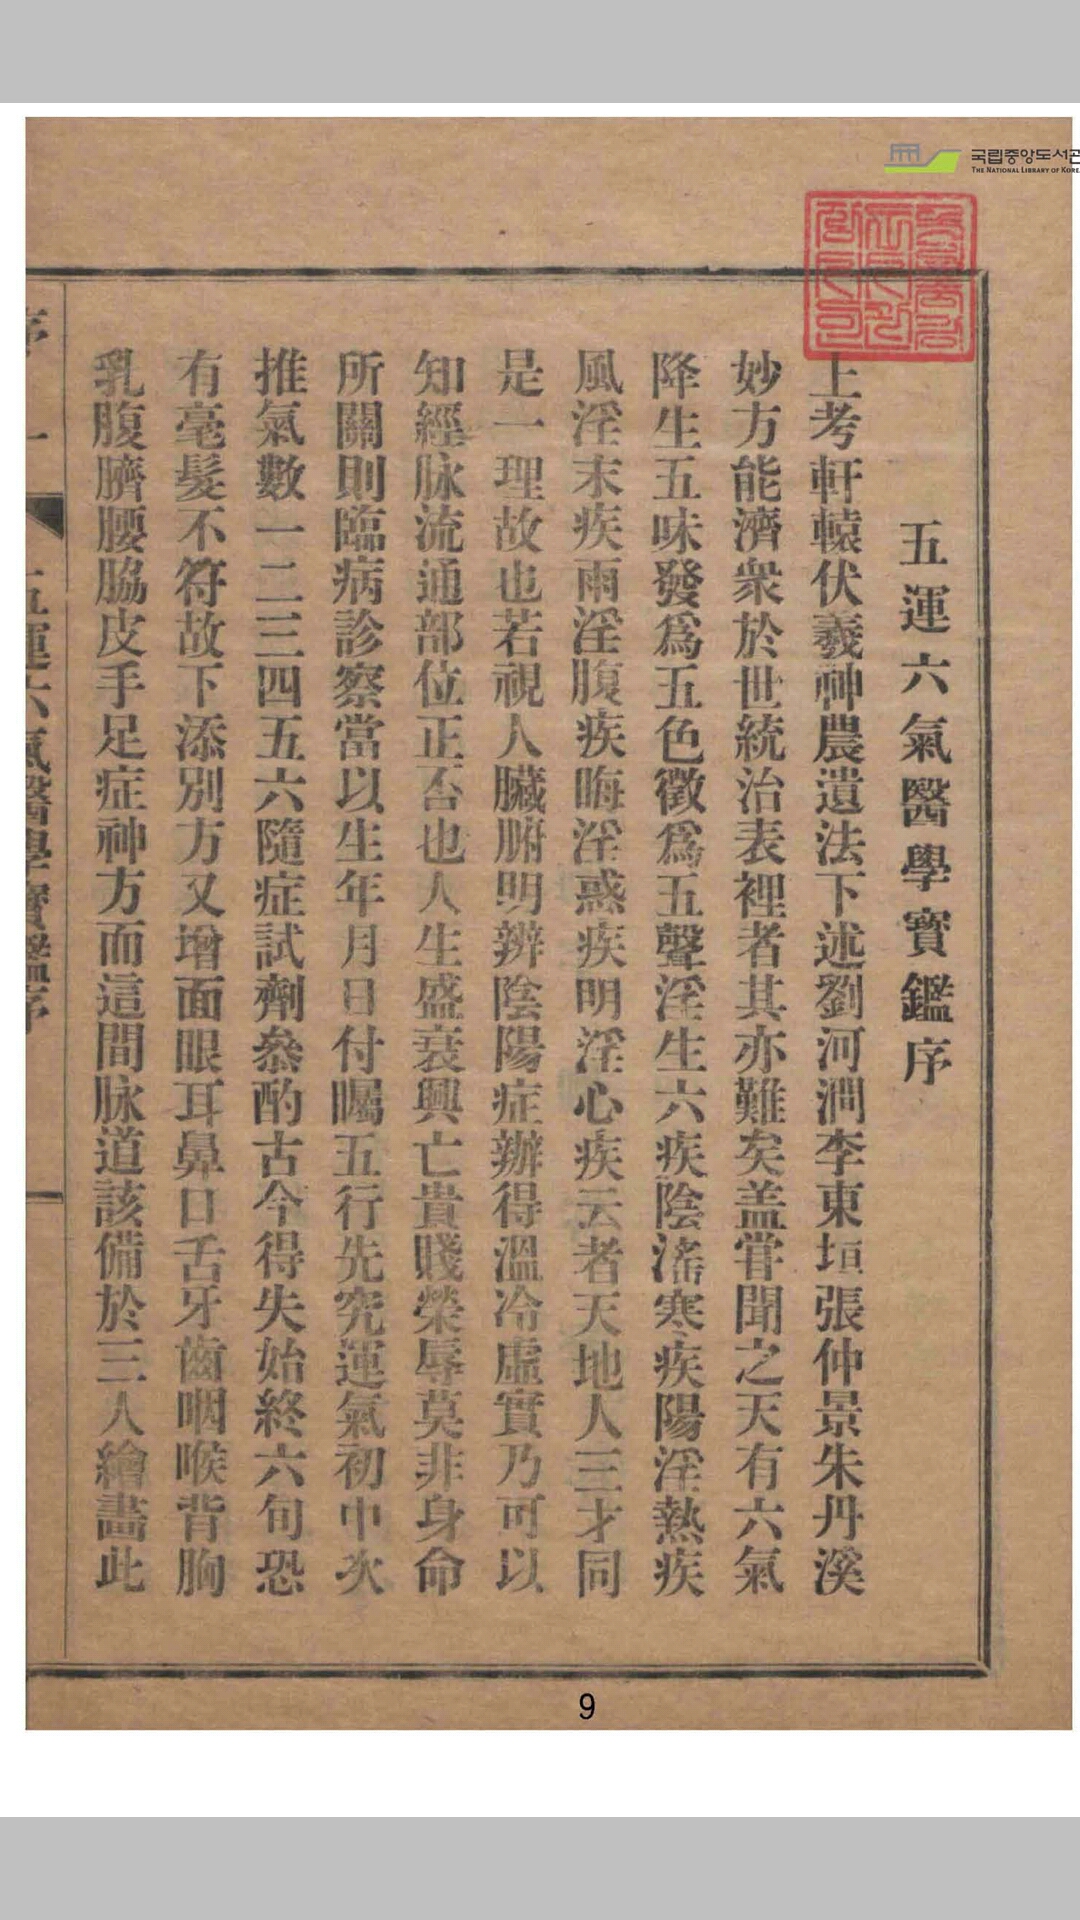 국립중앙도서관
THE NATIONAL LIBRARY OF KORE
五運六氣醫學寶鑑序
上考軒轅伏羲神農遺法下述劉河澗李東垣張仲景朱丹溪
妙方能濟衆於世統治表裡者其亦難矣盖甞聞之天有六氣
降生五味發爲五色徵爲五聲淫生六疾陰淫寒疾陽淫熱疾
風淫末疾雨淫腹疾晦淫惑疾明淫心疾云者天地人三才同
是一理故也若視人臟腑明辨陰陽症辦得溫冷虛實乃可以
知經脉流通部位正否也人生盛衰興亡貴賤榮辱莫非身命
所關則臨病診察當以生年月日付囑五行先究運氣初中次
推氣數一二三四五六隨症試劑叅酌古今得失始終六旬恐
有毫髮不符故下添別方又增面眼耳鼻口舌牙齒咽喉背胸
乳腹臍腰脇皮手足症神方而這間脉道該備於三人繪畵此
序 一 五運六氣醫學寶鑑序
9